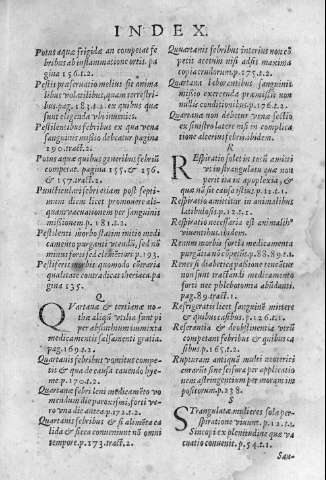 INDEX.
Potus aquæ frigidæ an competat fe
bribus ab inflammatione ortis. pa
gina 156.t.2.
Pestis præseruatio melius sit anima
libus volatilibus, quam terrestri-
bus. pag. 183. t.2. ex quibus quæ
sunt eligenda vbi inuitis.
Pestilentibus febribus ex qua vena
sanguinis missio debeatur pagina
190. tract.2.
Potus aquæ quibus generibus febriũ
competat. pagina 155. & 156.
& 157. tract.2.
Puncticularis febri etiam post septi-
mum diem licet promouere ali-
quam vacuationem per sanguinis
missionem p. 181. t.2.
Pestilenti morbo statim initio medi
camento purganti vtendũ, sed nõ
minus forti sed clementiori p. 193.
Pestiferis morbis quomodo cõtraria
qualitate contradicat theriaca pa
gina 135.
Q
QVartana & tertiana no-
tha aliqñ vtilia sunt pi
per absinthium immixta
medicamentis salsainenti gratia.
pag. 169. t.2.
Quartanis febribus vomitus compe-
tit & qua de causa cauendo hye-
me p. 170. t.2.
Quartanis febri leni medicamẽto vo
mendum die paroxismi, forti ve-
ro vna die antea p. 172. t.2.
Quartanis febribus & si alimẽta ca
lida & sicca conueniunt nõ omni
tempore. p. 173. tract.2.
Quartanis febribus interius non cõ
petit acetum nisi adsit maxima
copia cruditorum p. 175. t.2.
Quartana laborantibus sanguinis
missio exercenda præmissis non
nullis conditionibus p. 176. t.2.
Quartana non debetur vena sectio
ex sinistro latere nisi in complica
tione alterius febris. ibidem.
R
REspiratio solet in tecũ amitti
vi in strangulata quæ non
perit ita in apoplexia; &
quæ nã sit causa istius. p. 12. t.1.
Respiratio amittitur in animalibus
latibulosis. p. 12. t.1.
Respiratio necessaria est animalibꝰ
viuentibus. ibidem.
Renum morbis fortia medicamenta
purgatia nõ cõpetũt. p. 88. 89. t.1.
Renes si diabetica passione tenẽtur
non sunt tractandi medicamento
forti nec phlebotomia abũdanti.
pag. 89. tract.1.
Refrigeratis licet sanguinẽ mittere
& quibus casibus. p. 126. t.1.
Referantia & deobstruentia vtrũ
competant febribus & quibus ca
sibus. p. 165. t.2.
Rupturam antiqui multi exoterici
curari sine scissura per applicatio
nem astringentium per moram im
positorum p. 238.
S
STrangulatæ mulieres sola per-
spiratione viuunt. p. 12. t.1.
Sincopi ex plenitudine quæ va
cuatio conuenit. p. 54. t.1.
San-